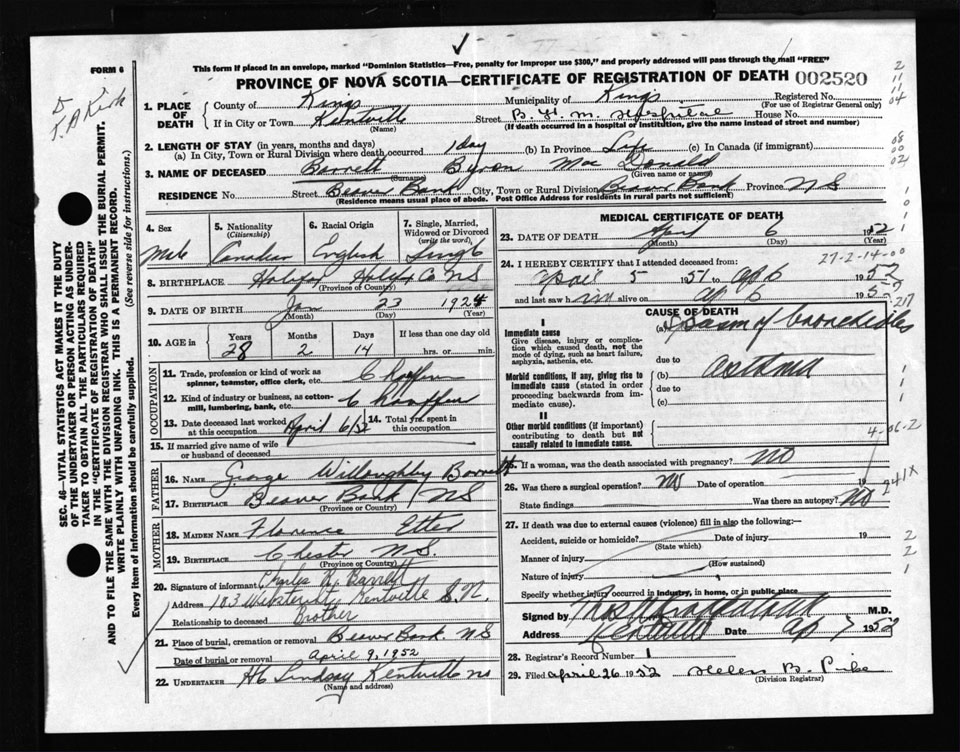 FORM 6
This form if placed in an envelope, marked "Dominion Statistics—Free, penalty for improper use $300," and properly addressed will pass through the mail "FREE"
PROVINCE OF NOVA SCOTIA—CERTIFICATE OF REGISTRATION OF DEATH 002520
1. PLACE OF DEATH
County of Kings Municipality of Kings Registered No.
(For use of Registrar General only)
If in City or Town Kentville Street B. F. M. Hospital House No.
(Name) (If death occurred in a hospital or institution, give the name instead of street and number)
2. LENGTH OF STAY (in years, months and days)
(a) In City, Town or Rural Division where death occurred 1 day (b) In Province Life (c) In Canada (if immigrant)
3. NAME OF DECEASED Barrett Byron Mac Donald
(Surname) (Given name or names)
RESIDENCE No. Street Beaver Bank City, Town or Rural Division Beaver Bank Province N S
(Residence means usual place of abode. Post Office Address for residents in rural parts not sufficient)
4. Sex
Male
5. Nationality
(Citizenship)
Canadian
6. Racial Origin
English
7. Single, Married, Widowed or Divorced
(write the word)
Single
8. BIRTHPLACE Halifax Halifax Co NS
(Province or Country)
9. DATE OF BIRTH Jan 23 1924
(Month) (Day) (Year)
10. AGE in
Years Months Days If less than one day old
28 2 14 hrs. or min.
OCCUPATION
11. Trade, profession or kind of work as spinner, teamster, office clerk, etc. Chauffeur
12. Kind of industry or business, as cotton-mill, lumbering, bank, etc. Chauffeur
13. Date deceased last worked at this occupation April 6/52
14. Total yrs. spent in this occupation
15. If married give name of wife or husband of deceased
FATHER
16. NAME George Willoughby Barrett
17. BIRTHPLACE Beaver Bank NS
(Province or Country)
MOTHER
18. MAIDEN NAME Florence Etter
19. BIRTHPLACE Chester N S.
(Province or Country)
20. Signature of informant Charles R. Barrett
Address 183 Webster St, Kentville
Relationship to deceased Brother
21. Place of burial, cremation or removal Beaver Bank NS
Date of burial or removal April 9, 1952
22. UNDERTAKER H C Lindsay Kentville NS
(Name and address)
MEDICAL CERTIFICATE OF DEATH
23. DATE OF DEATH April 6 1952
(Month) (Day) (Year)
27-2-14-00
24. I HEREBY CERTIFY that I attended deceased from:
April 5 1952 to Ap 6 1952
and last saw him alive on Ap 6 1952
CAUSE OF DEATH
I
Immediate cause
Give disease, injury or complication which caused death, not the mode of dying, such as heart failure, asphyxia, asthenia, etc.
(a) Spasm of bronchioles
due to
Morbid conditions, if any, giving rise to immediate cause (stated in order proceeding backwards from immediate cause).
(b) asthma
due to
(c)
II
Other morbid conditions (if important) contributing to death but not causally related to immediate cause.
4-06-2
25. If a woman, was the death associated with pregnancy? no
26. Was there a surgical operation? no Date of operation 19
State findings Was there an autopsy? no
241X
27. If death was due to external causes (violence) fill in also the following:—
Accident, suicide or homicide? Date of injury 19
(State which)
Manner of injury
(How sustained)
Nature of injury
Specify whether injury occurred in industry, in home, or in public place
Signed by M.D.
Address Kentville Date Ap 7 1952
28. Registrar's Record Number 1
29. Filed April 26 1952 Helen B.
(Division Registrar)
SEC. 46—VITAL STATISTICS ACT MAKES IT THE DUTY OF THE UNDERTAKER OR PERSON ACTING AS UNDERTAKER TO OBTAIN ALL THE PARTICULARS REQUIRED IN THE "CERTIFICATE OF REGISTRATION OF DEATH" AND TO FILE THE SAME WITH THE DIVISION REGISTRAR WHO SHALL ISSUE THE BURIAL PERMIT.
WRITE PLAINLY WITH UNFADING INK. THIS IS A PERMANENT RECORD.
Every item of information should be carefully supplied. (See reverse side for instructions.)